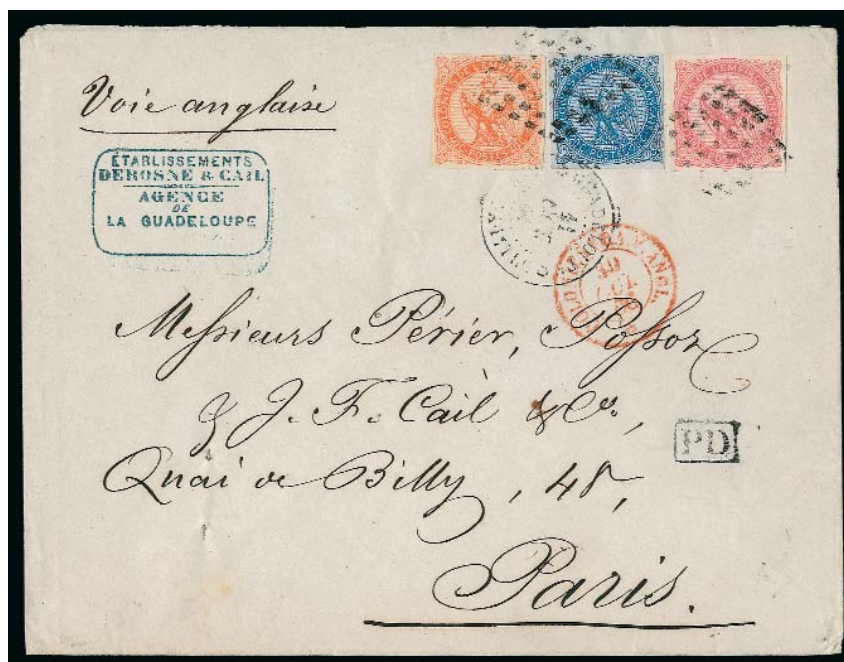 Voie anglaise
ÉTABLISSEMENTS
DEROSNE & CAIL
AGENCE
DE
LA GUADELOUPE
Messieurs Périer, Possoz
& J. F. Cail & Co,
PD
Quai de Billy, 48,
Paris.